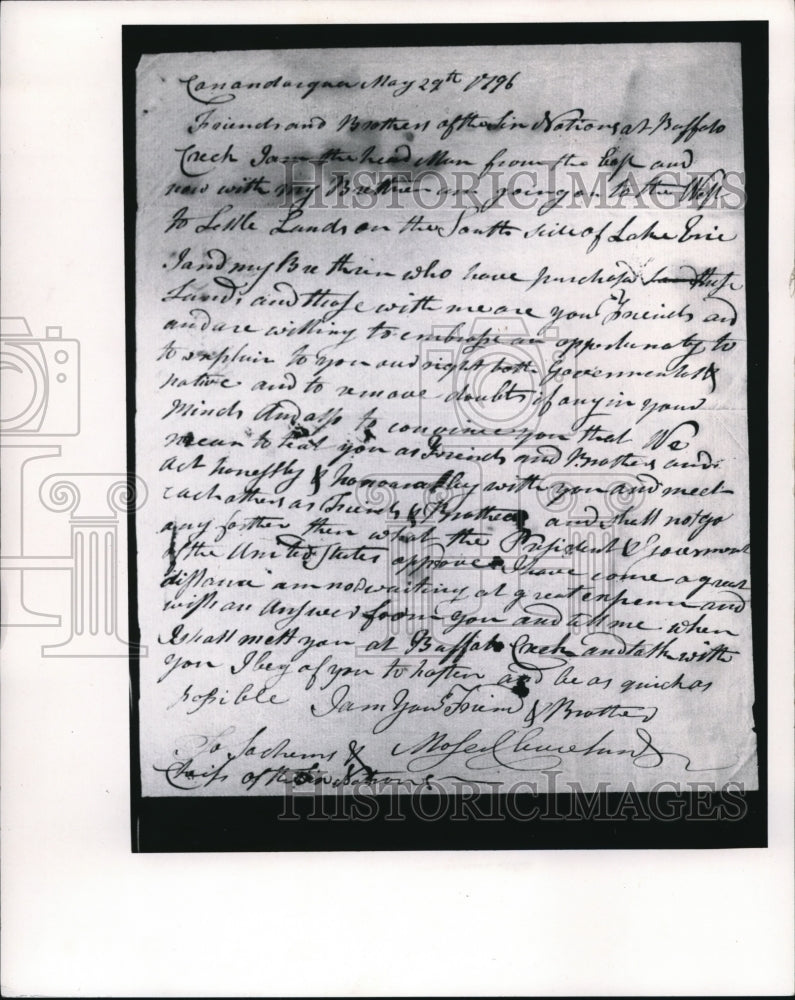 Canandarquea May 29th 1796
Friends and Brothers of the Six Nations at Buffalo
Creek I am the head Man from the East and
now with my Brethren am going on to the West
to Settle Lands on the South side of Lake Erie
I and my Brethren who have purchased these
Lands and those with me are your Friends and
and are willing to embrase an opportunaty to
to explain to you our right both Government &
native and to remove doubts if any in your
Minds And also to convince you that We
mean to treat you as Friends and Brothers and
act honestly & honourabley with you and meet
each others as Friends & Brothers and shall not go
any farther then what the President & Goverment
of the United States approve I have come a great
distance am now waiting at great expence and
wish an Answer from you and tell me when
I shall mett you at Buffalo Creek and talk with
you I beg of you to hasten and be as quick as
possible I am Your Friend & Brother
Moses Cleaveland
To Sachems &
Chiefs of the Six Nations
HISTORICIMAGES
HISTORICIMAGES